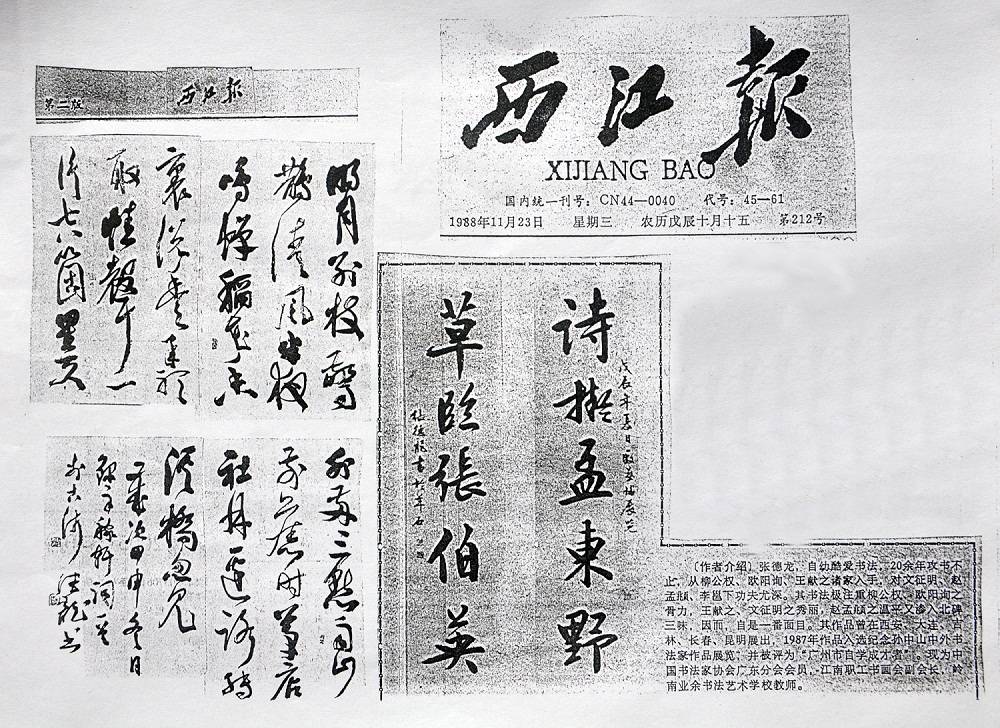 西江報
XIJIANG BAO
国内统一刊号：CN44—0040 代号：45—61
1988年11月23日 星期三 农历戊辰十月十五 第212号
第二版 西江報
明月別枝驚
鵲清風半夜
鳴蟬稻花香
裏說豐年聽
取蛙聲一
片七八箇星天
外兩三點雨山
前舊時茅店
社林邊路轉
溪橋忽見
歲次甲申冬日
德龍書
詩擬孟東野
草臨張伯英
〔作者介绍〕张德龙，自幼酷爱书法，20余年攻书不
止，从柳公权、欧阳询、王献之诸家入手，对文征明、赵
孟頫、李邕下功夫尤深。其书法极注重柳公权、欧阳询之
骨力，王献之、文征明之秀丽，赵孟頫之温平又渗入北碑
三昧，因而，自是一番面目。其作品曾在西安、大连、吉
林、长春、昆明展出，1987年作品入选纪念孙中山中外书
法家作品展览，并被评为“广州市自学成才者”。现为中
国书法家协会广东分会会员，江南职工书画会副会长，岭
南业余书法艺术学校教师。